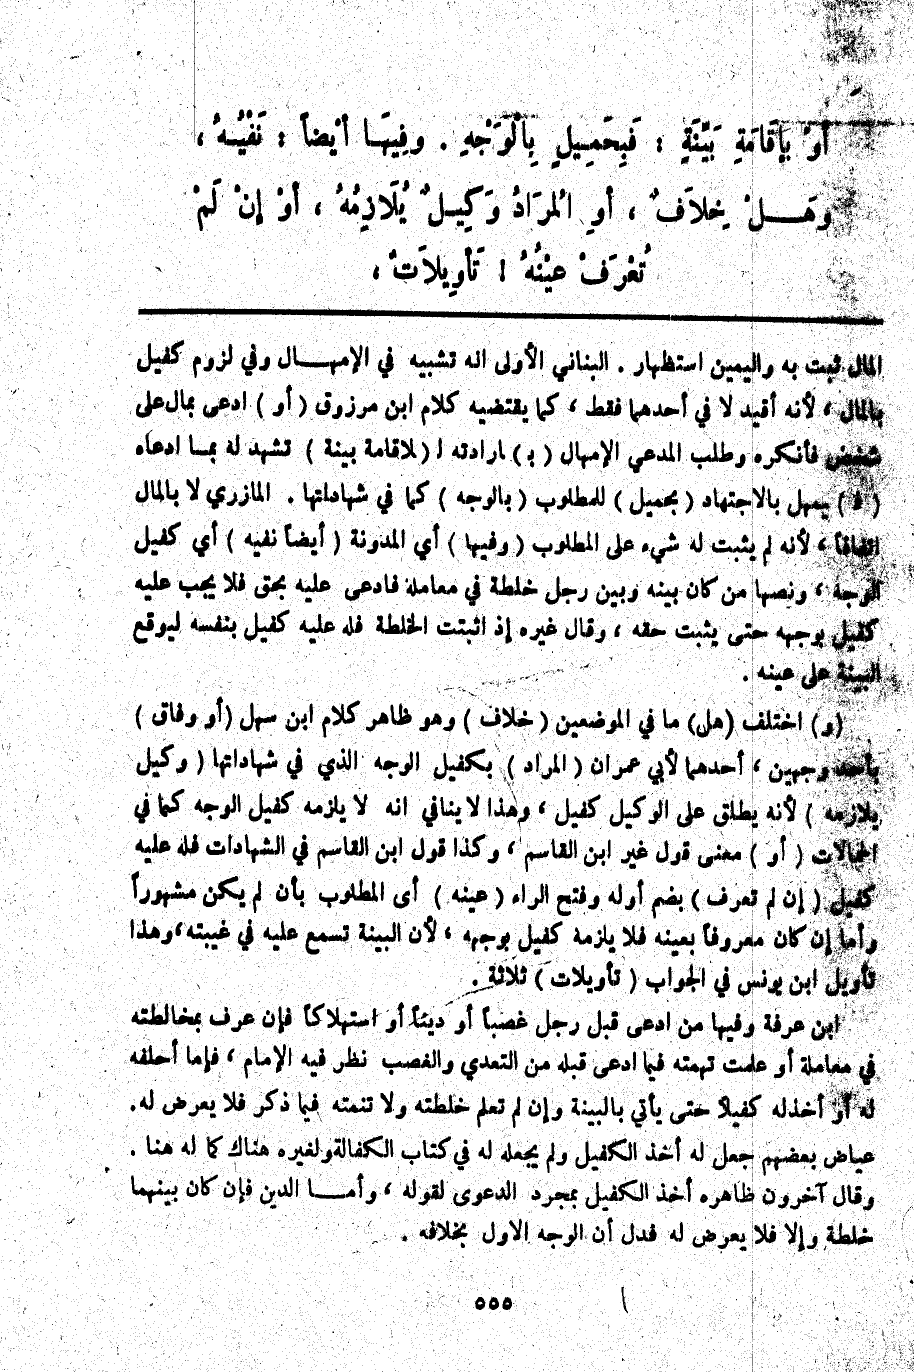 أوْ بِإقَامَةِ بَيِّنَةٍ : فَبِحَمِيلٍ بِالْوَجْهِ . وفِيهَا أيْضاً : نَفْيُهُ ،
وهَلْ خِلاَفٌ ، أوِ الْمرَادُ وَكِيلٌ يُلَازِمُهُ ، أوْ إنْ لَمْ
تُعْرَفْ عَيْنُهُ ! تَأوِيلاَتٌ ،
المال ثبت به واليمين استظهار . البناني الأولى انه تشبيه في الإمهال وفي لزوم كفيل
بالمال ، لأنه أقيد لا في أحدهما فقط ، كما يقتضيه كلام ابن مرزوق ( أو ) ادعى بمال على
شخص فأنكره وطلب المدعي الإمهال ( بـ ) ارادته لـ ( لاقامة بينة ) تشهد له بما ادعاه
( فـ ) يمهل بالاجتهاد ( بحميل ) للمطلوب ( بالوجه ) كما في شهاداتها . المازري لا بالمال
اتفاقاً ، لأنه لم يثبت له شيء على المطلوب ( وفيها ) أي المدونة ( أيضاً نفيه ) أي كفيل
الوجه ، ونصها من كان بينه وبين رجل خلطة في معاملة فادعى عليه بحق فلا يجب عليه
كفيل بوجهه حتى يثبت حقه ، وقال غيره إذ اثبتت الخلطة فله عليه كفيل بنفسه ليوقع
البينة على عينه .
(و) اختلف (هل) ما في الموضعين ( خلاف ) وهو ظاهر كلام ابن سهل (أو وفاق )
بأحد وجهين ، أحدهما لأبي عمران ( المراد ) بكفيل الوجه الذي في شهاداتها ( وكيل
يلازمه ) لأنه يطلق على الوكيل كفيل ، وهذا لا ينافي انه لا يلزمه كفيل الوجه كما في
الحمالات ( أو ) معنى قول غير ابن القاسم ، وكذا قول ابن القاسم في الشهادات فله عليه
كفيل ( إن لم تعرف ) بضم أوله وفتح الراء ( عينه ) أى المطلوب بأن لم يكن مشهوراً
وأما إن كان معروفاً بعينه فلا يلزمه كفيل بوجهه ، لأن البينة تسمع عليه في غيبته،وهذا
تأويل ابن يونس في الجواب ( تأويلات ) ثلاثة .
ابن عرفة وفيها من ادعى قبل رجل غصباً أو ديناً أو استهلاكاً فإن عرف بمخالطته
في معاملة أو علمت تهمته فيما ادعى قبله من التعدي والغصب نظر فيه الإمام ، فإما أحلفه
له أو أخذ له كفيلاً حتى يأتي بالبينة وإن لم تعلم خلطته ولا تتمته فيما ذكر فلا يعرض له.
عياض بعضهم جعل له أخذ الكفيل ولم يجعله له في كتاب الكفالة ولغيره هناك كما له هنا .
وقال آخرون ظاهره أخذ الكفيل بمجرد الدعوى لقوله ، وأما الدين فإن كان بينهما
خلطة وإلا فلا يعرض له فدل أن الوجه الاول بخلافه .
٥٥٥